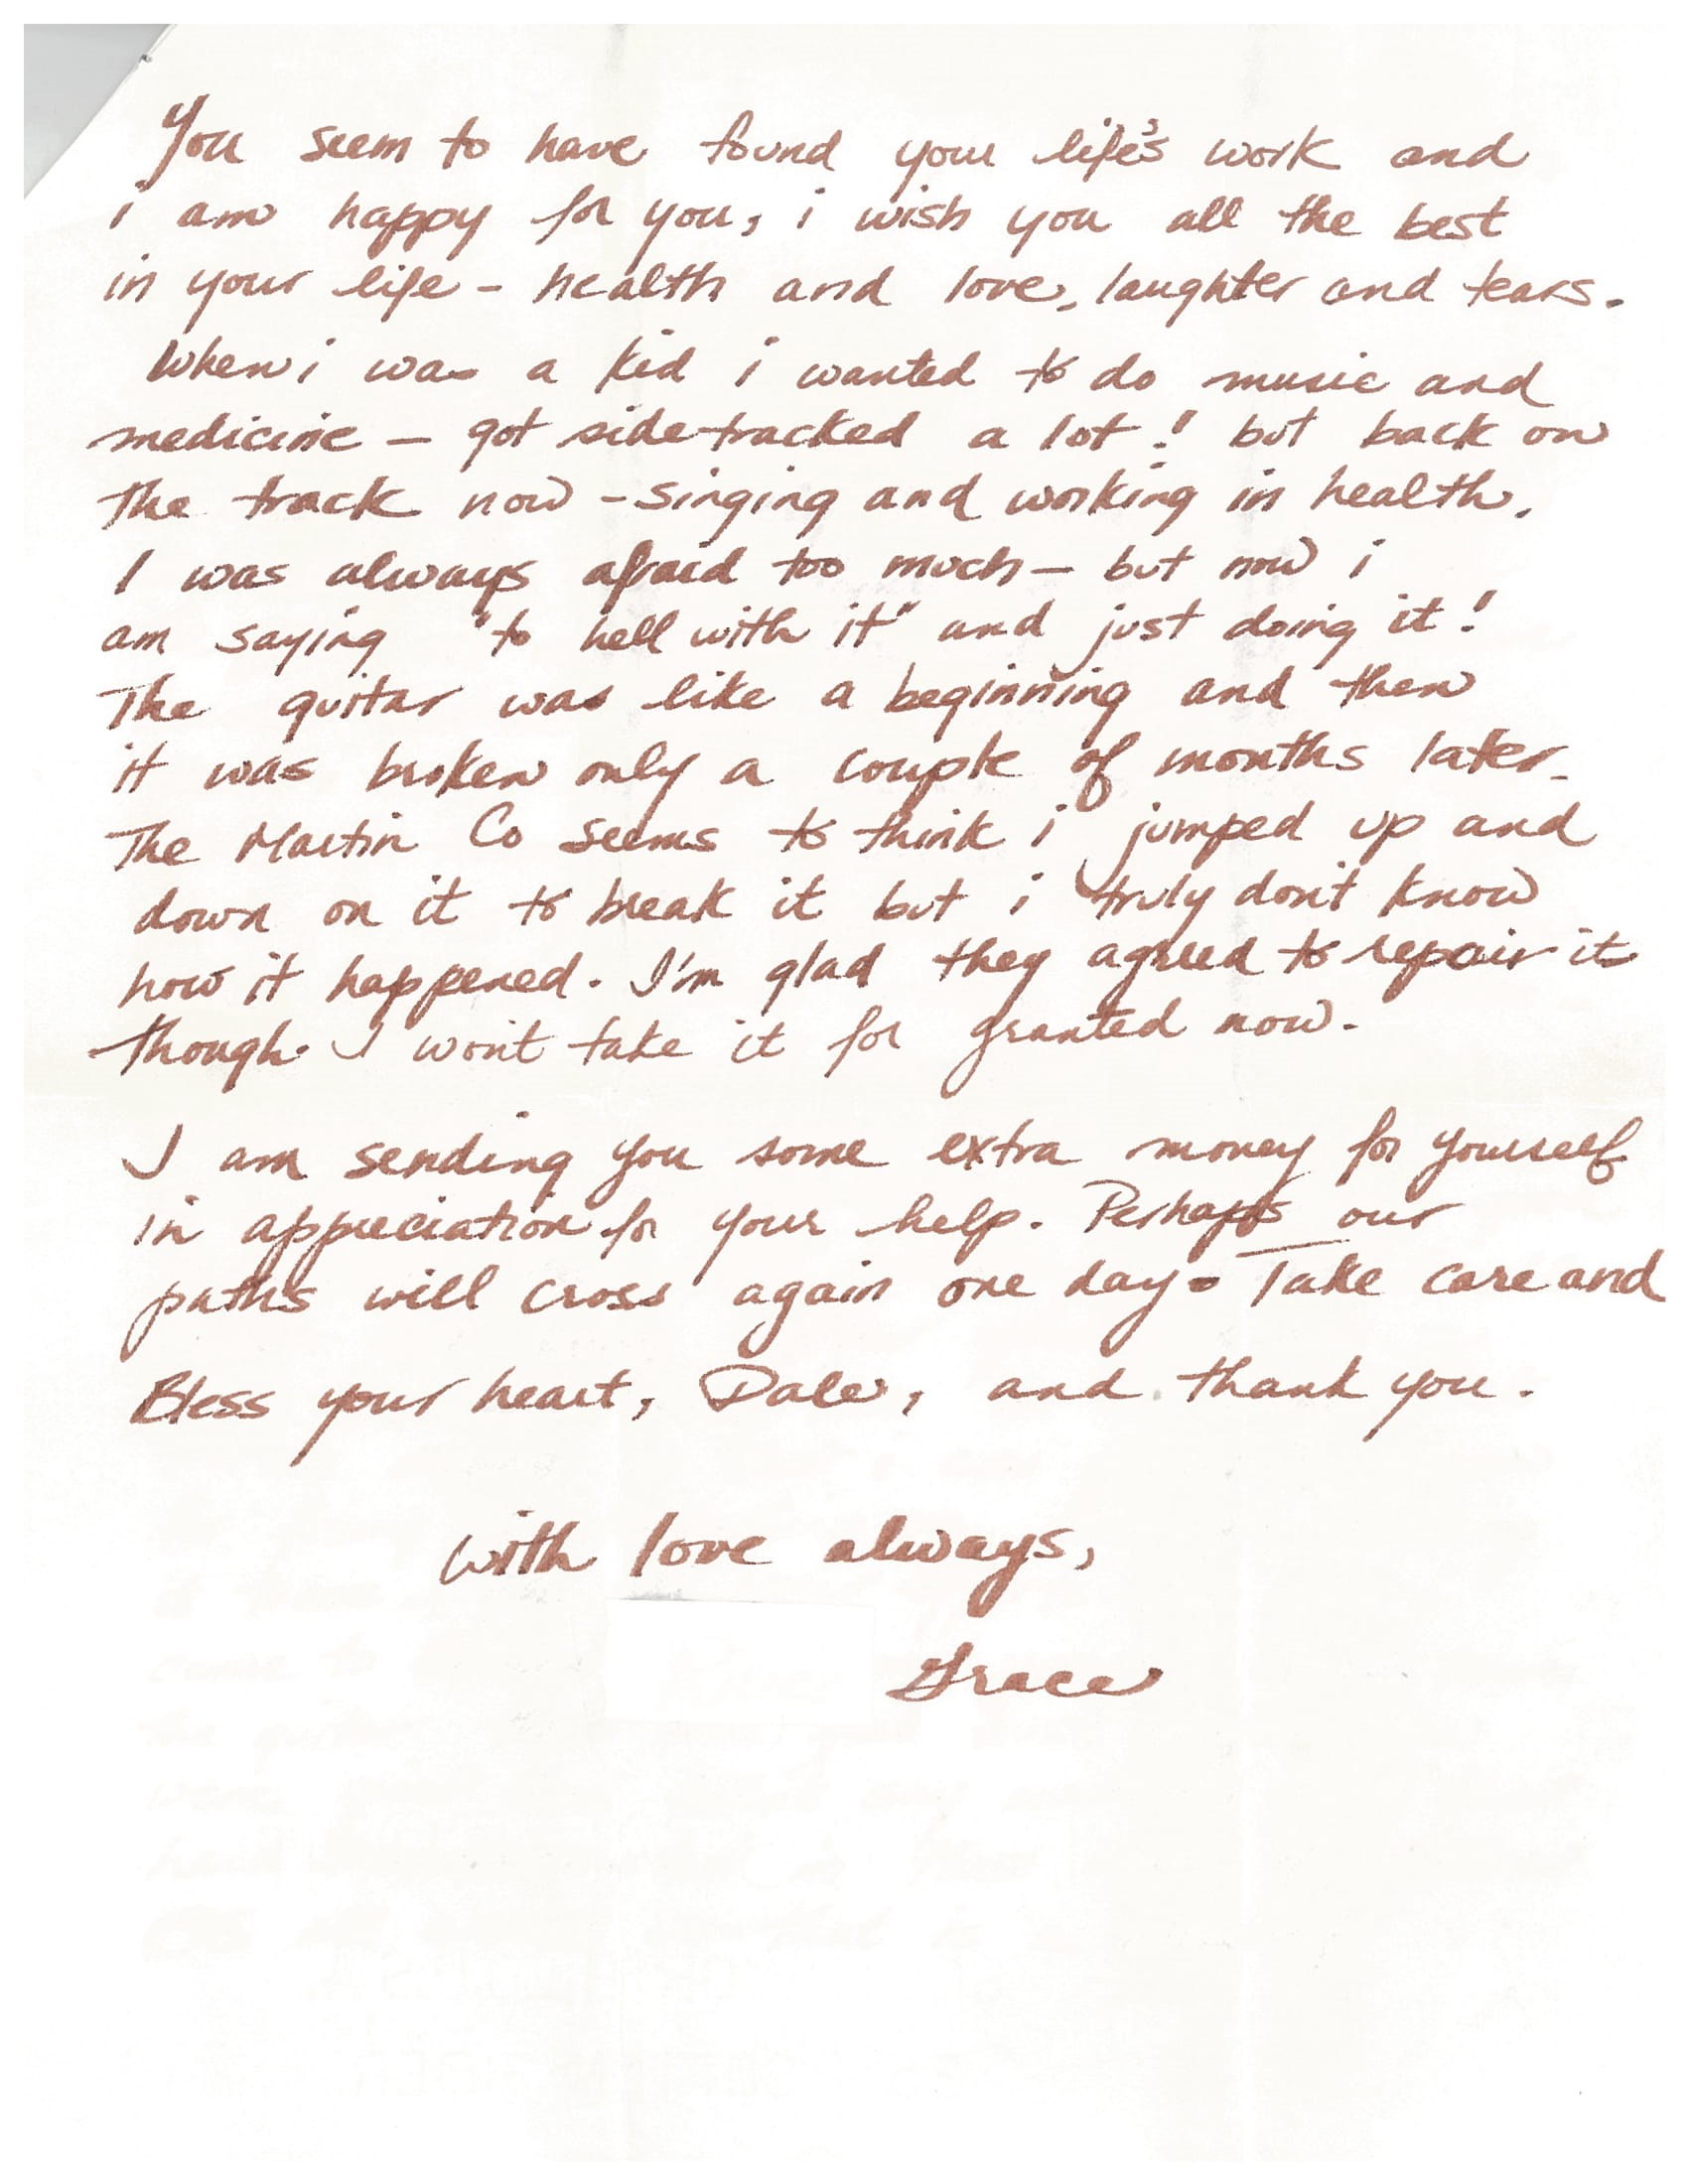 You seem to have found your life's work and
i am happy for you, i wish you all the best
in your life - health and love, laughter and tears.
When i was a kid i wanted to do music and
medicine - got side-tracked a lot! but back on
the track now - singing and working in health.
I was always afraid too much - but now i
am saying "to hell with it" and just doing it!
The guitar was like a beginning and then
it was broken only a couple of months later.
The Martin Co seems to think i jumped up and
down on it to break it but i truly don't know
how it happened. I'm glad they agreed to repair it
though. I won't take it for granted now.
I am sending you some extra money for yourself
in appreciation for your help. Perhaps our
paths will cross again one day. Take care and
Bless your heart, Dale, and thank you.
with love always,
Grace